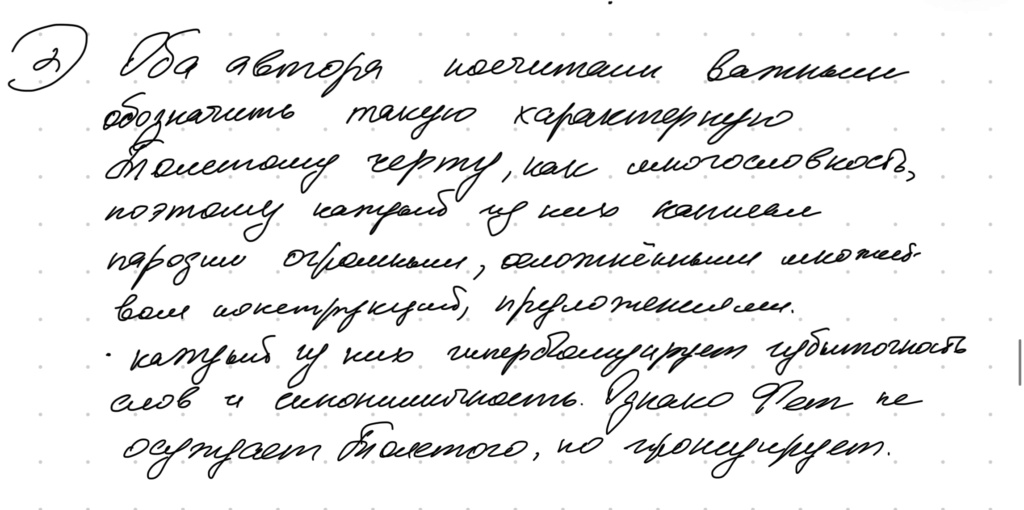 2) Оба автора посчитали важным
обозначить такую характерную
Толстому черту, как многословность,
поэтому каждый из них написал
пародии огромными, осложнёнными множест-
вом конструкций, предложениями.
· каждый из них гиперболизирует избыточность
слов и синонимичность. Однако Фет не
осуждает Толстого, но иронизирует.